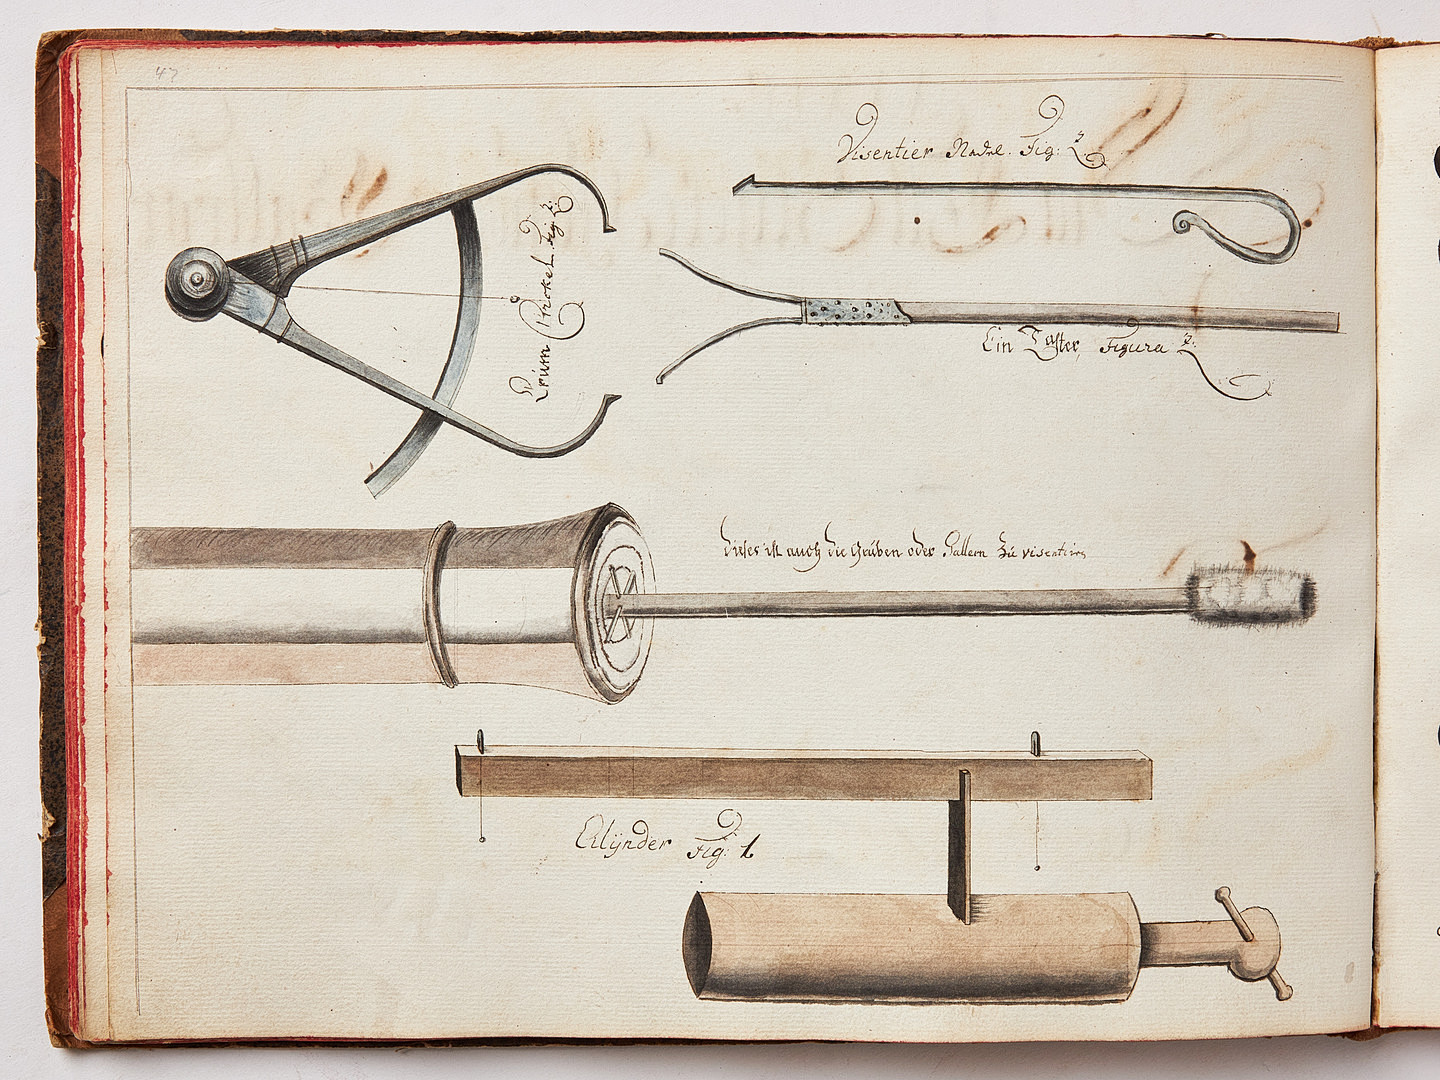 47
Visentier Nadel. Fig: 2.
Ein Taster, Figura 2.
Fig. 2.
dieses ist auch die Gruben oder Gallern zu visentiren
Cilÿnder Fig: 1